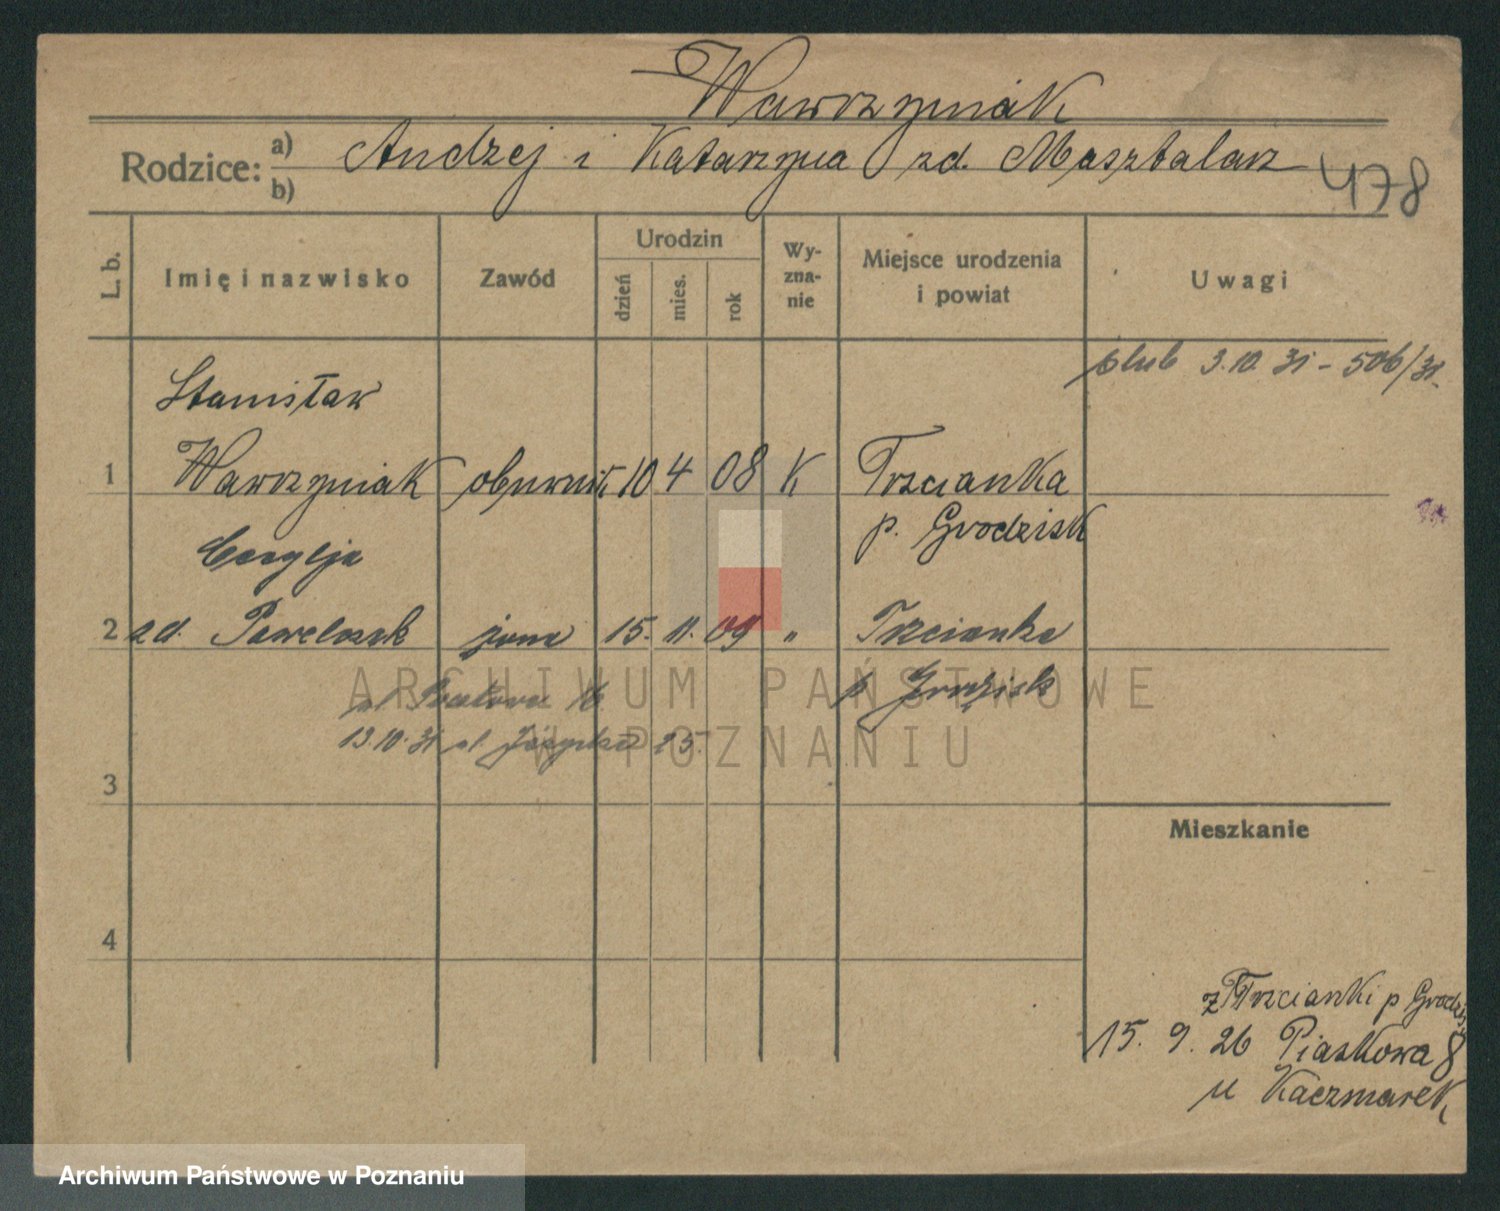 Wawrzyniak
Rodzice: a) Andzej i Katarzyna zd. Masztalarz
b)
478
L. b.
Imię i nazwisko
Zawód
Urodzin
dzień
mies.
rok
Wy-
zna-
nie
Miejsce urodzenia
i powiat
Uwagi
ślub 3.10 31 - 506/31.
Stanisław
1 Wawrzyniak obuwnik 10 4 08 K Trzcianka
p. Grodzisk
Cecylja
2 zd. Pawelczak żona 15. 11. 09 " Trzcianka
p Grodzisk
ul 16
13.10.31 ul. 25.
3
4
Mieszkanie
z Trzcianki p Grodzisk
15. 9. 26 Piaskowa 8
u Kaczmarek
ARCHIWUM PAŃSTWOWE
W POZNANIU
Archiwum Państwowe w Poznaniu